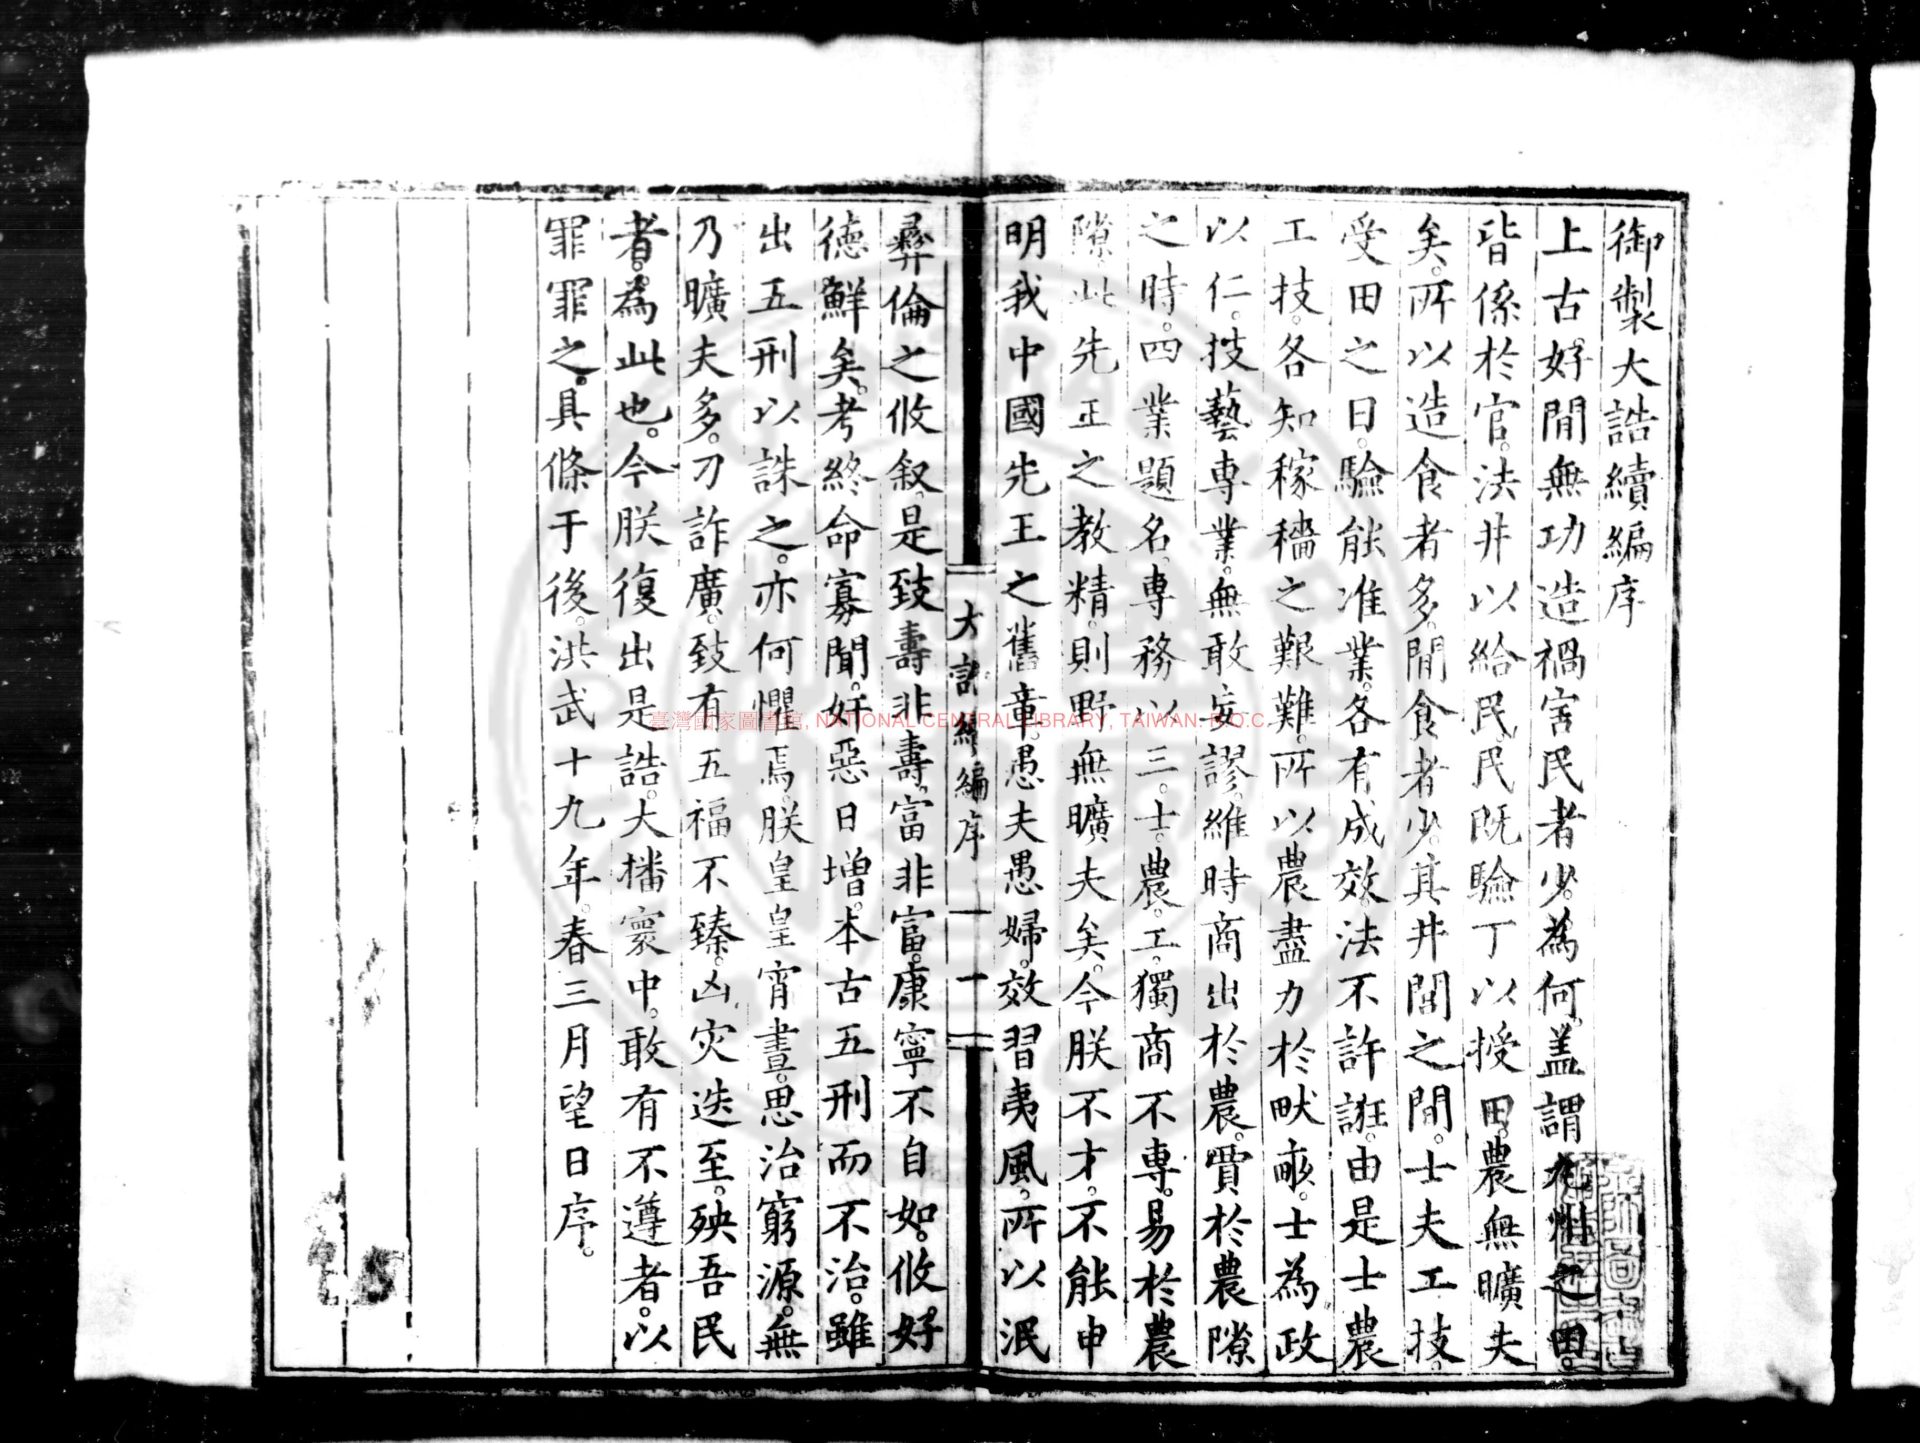 御製大誥續編序
上古好閒無功造禍害民者少為何蓋謂九州之田
皆係於官法井以給民民既驗丁以授田農無曠夫
矣所以造食者多閒食者少其井閭之間士夫工技
受田之日驗能准業各有成效法不許誑由是士農
工技各知稼穡之艱難所以農盡力於畎畝士為政
以仁技藝專業無敢妄謬維時商出於農賈於農隙
之時四業題名專務以三士農工獨商不專易於農
隙此先王之教精則野無曠夫矣今朕不才不能申
明我中國先王之舊章愚夫愚婦效習夷風所以泯
彞倫之攸叙是致壽非壽富非富康寧不自如攸好
德鮮矣考終命寡聞奸惡日增本古五刑而不治雖
出五刑以誅之亦何懼焉朕皇皇宵晝思治窮源無
乃曠夫多刁詐廣致有五福不臻凶灾迭至殃吾民
者為此也今朕復出是誥大播寰中敢有不遵者以
罪罪之具條于後洪武十九年春三月望日序
大誥續編序 一
臺灣國家圖書館, NATIONAL CENTRAL LIBRARY, TAIWAN. R.O.C.